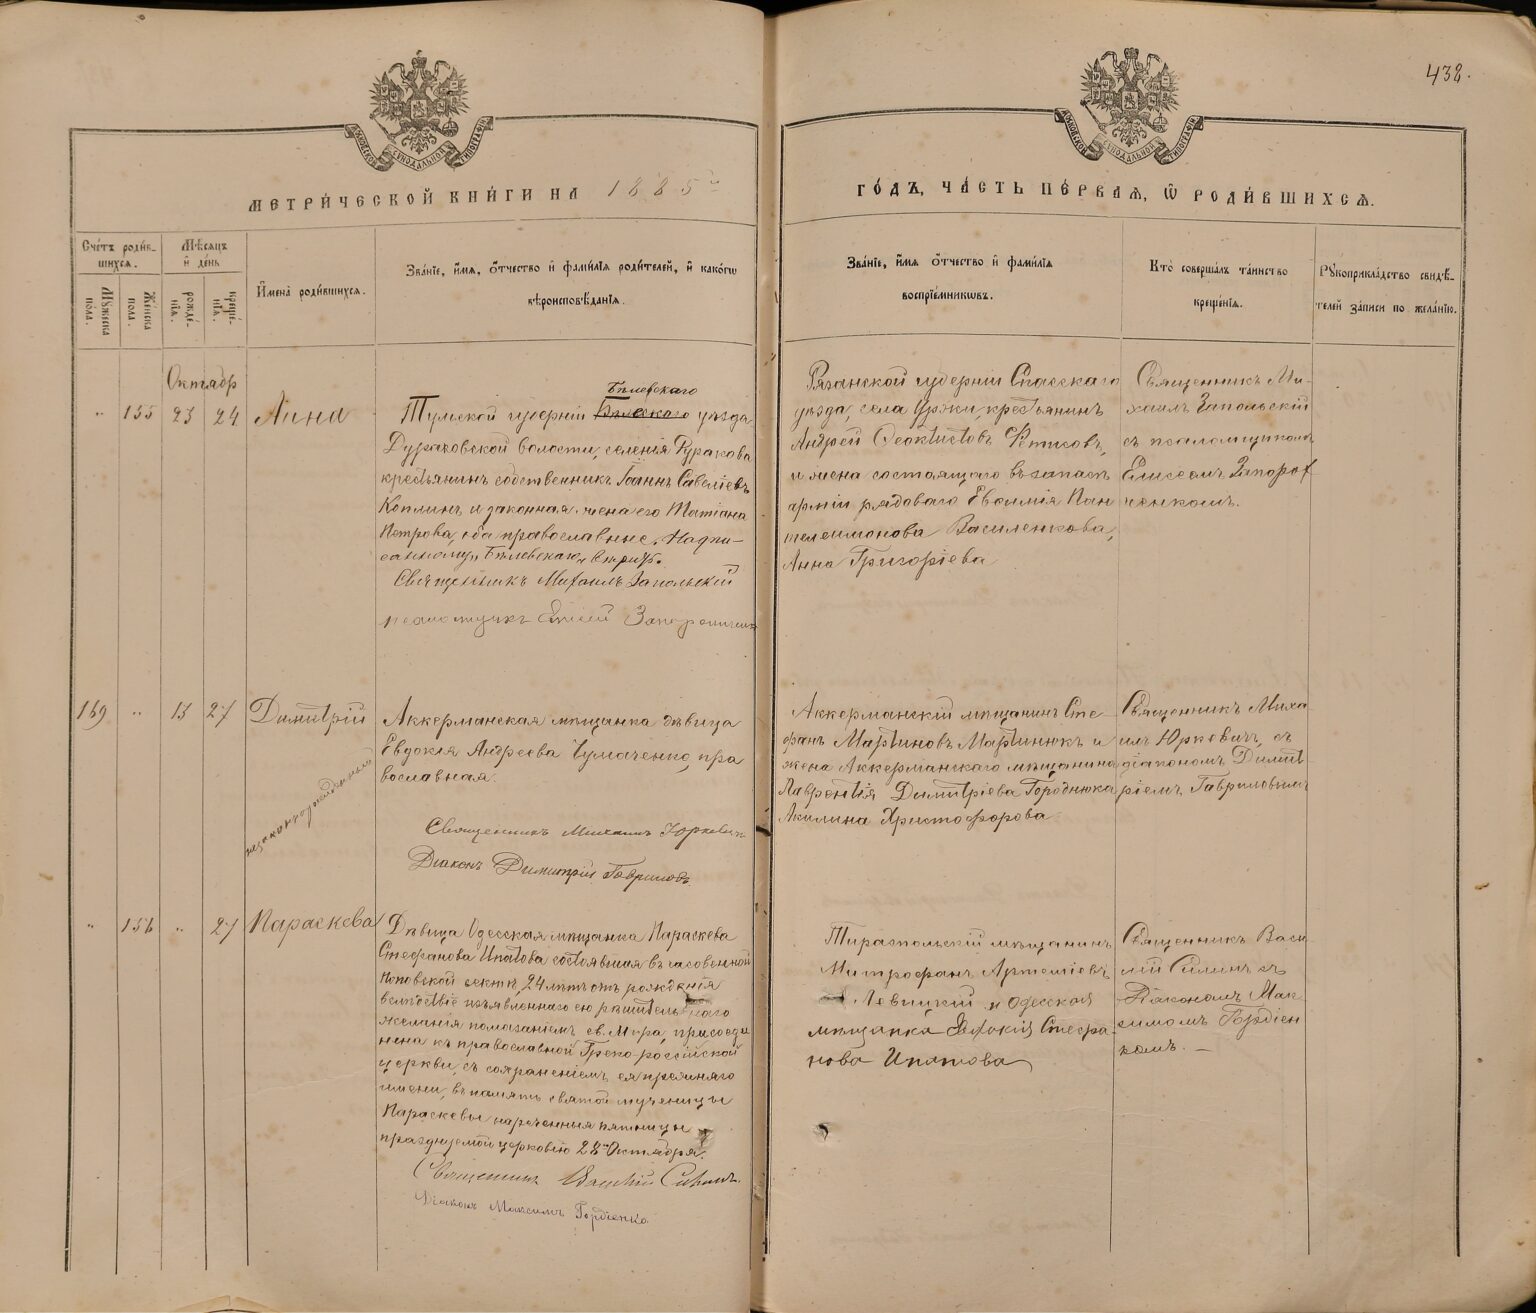 438.
МОСКОВСКОЙ СУНОДАЛЬНОЙ ТИПОГРАФІИ
МОСКОВСКОЙ СУНОДАЛЬНОЙ ТИПОГРАФІИ
МЕТРИ́ЧЕСКОЙ КНИ́ГИ НА 1885й
ГО́ДЪ, ЧА́СТЬ ПЕ́РВАѦ, Ѽ РОДИ́ВШИХСѦ.
Сче́тъ роди́в-
шихсѧ.
Мꙋ́жеска
по́ла.
Же́нска
пола.
Мѣ́сѧцъ
и҆ де́нь
рожде́-
нїѧ.
креще́-
нїѧ.
И҆мена̀ роди́вшихсѧ.
Зва́нїе, и҆́мѧ, ѻ҆́тчество и҆ фами́лїѧ роди́телей, и҆ како́гѡ
вѣроисповѣ́данїѧ.
Зва́нїе, и҆́мѧ ѻ҆́тчество и҆ фами́лїѧ
воспрїе́мникѡвъ.
Кто̀ соверша́лъ та́инство
креще́нїѧ.
Рꙋкоприкла́дство свидѣ́-
телей за́писи по жела́нїю.
Октябр
" 155 23 24 Анна
Бѣлевскаго
Тульской губерніи Бѣлскаго уѣзда
Дураковской волости, селенія Дуракова
крестьянинъ собственникъ Іоаннъ Савеліевъ
Коплинъ и законная жена его Татіана
Петрова, оба православные. Надпи-
санному „Бѣлевскаго„ вѣрить.
Священникъ Михаилъ Запольскій
псаломщикъ Елисей
Рязанской губерніи Спасскаго
уѣзда, села Ужки, крестьянинъ
Андрей Ѳеоктистовъ Фетисовъ,
и жена состоящаго въ запасѣ
арміи рядоваго Евѳимія Пан
телеимонова Василенкова,
Анна Григоріева
Священникъ Ми-
хаилъ Запольскій
съ псаломщикомъ
Елисеемъ Запорож
ченкомъ.
159 " 13 27 Димитрій
незаконнорожденный
Аккерманская мѣщанка дѣвица
Евдокія Андреева Чумаченко, пра
вославная.
Священникъ Михаилъ Юркевичъ
Діаконъ Димитрій Гавриловъ
Аккерманскій мѣщанинъ Сте-
фанъ Мартиновъ Мартинюкъ и
жена Аккерманскаго мѣщанина
Лаврентія Димитріева Городнюка
Акилина Христофорова
Священникъ Миха-
илъ Юркевичъ, съ
діакономъ Димит
ріемъ Гавриловымъ
" 156 " 27 Параскева
Дѣвица Одесская мѣщанка Параскева
Стефанова Ипатова состоявшая въ часовенной
поповской сектѣ, 24 лѣтъ отъ рожденія
вслѣдствіе изъявленнаго ею рѣшительнаго
желанія помазаніемъ св. Мира, присоеди
нена къ православной Греко-россійской
церкви, съ сохраненіемъ ея прежняго
имени, въ память святой мученицы
Параскевы нареченныя пятницы
празднуемой церковію 28го Октября.
Священникъ Василій Силинъ.
Діаконъ Максимъ Гордіенко
Тираспольскій мѣщанинъ
Митрофанъ Артеміевъ
Левицкій и Одесская
мѣщанка Евдокія Стефа-
нова Ипатова
Священникъ Васи
лій Силинъ съ
Діакономъ Мак
симомъ Гордіен
комъ. —